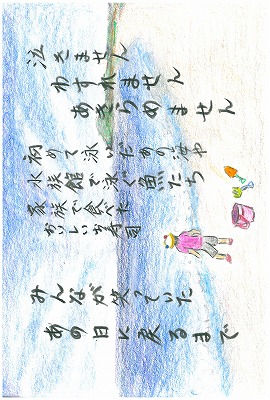 泣きません
わすれません
あきらめません
初めて泳いだあの海や
水族館で泳ぐ魚たち
家族で食べた
おいしいお寿司
みんなが笑っていた
あの日に戻るまで